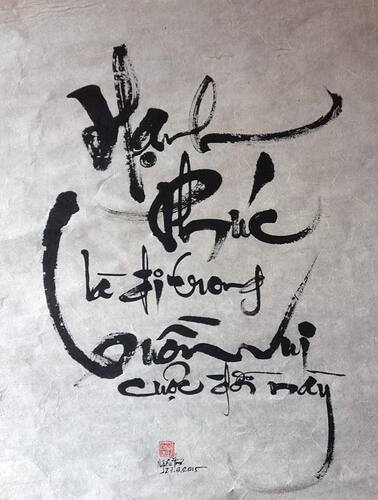 Hạnh
Phúc
là đi trong
buồn vui
cuộc đời này
27.9.2015